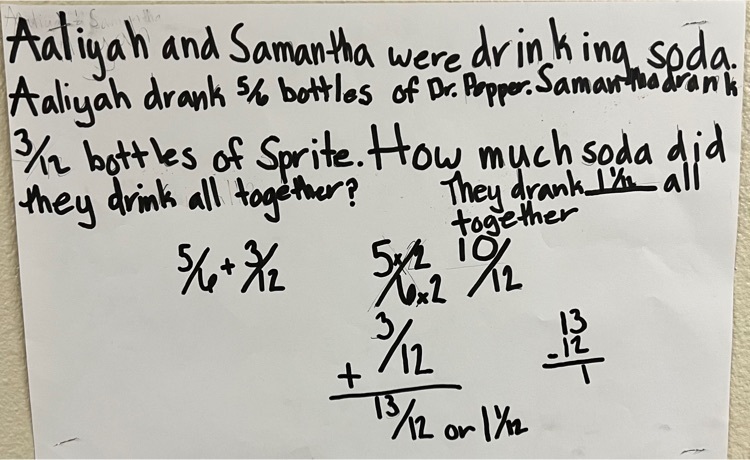 Aaliyah and Samantha were drinking soda.
Aaliyah drank 5/6 bottles of Dr. Pepper. Samantha drank
3/12 bottles of Sprite. How much soda did
they drink all together? They drank 1 1/12 all
together
5/6 + 3/12
5x2 10/12
/6x2
3/12
+
13/12 or 1 1/12
13
-12
1